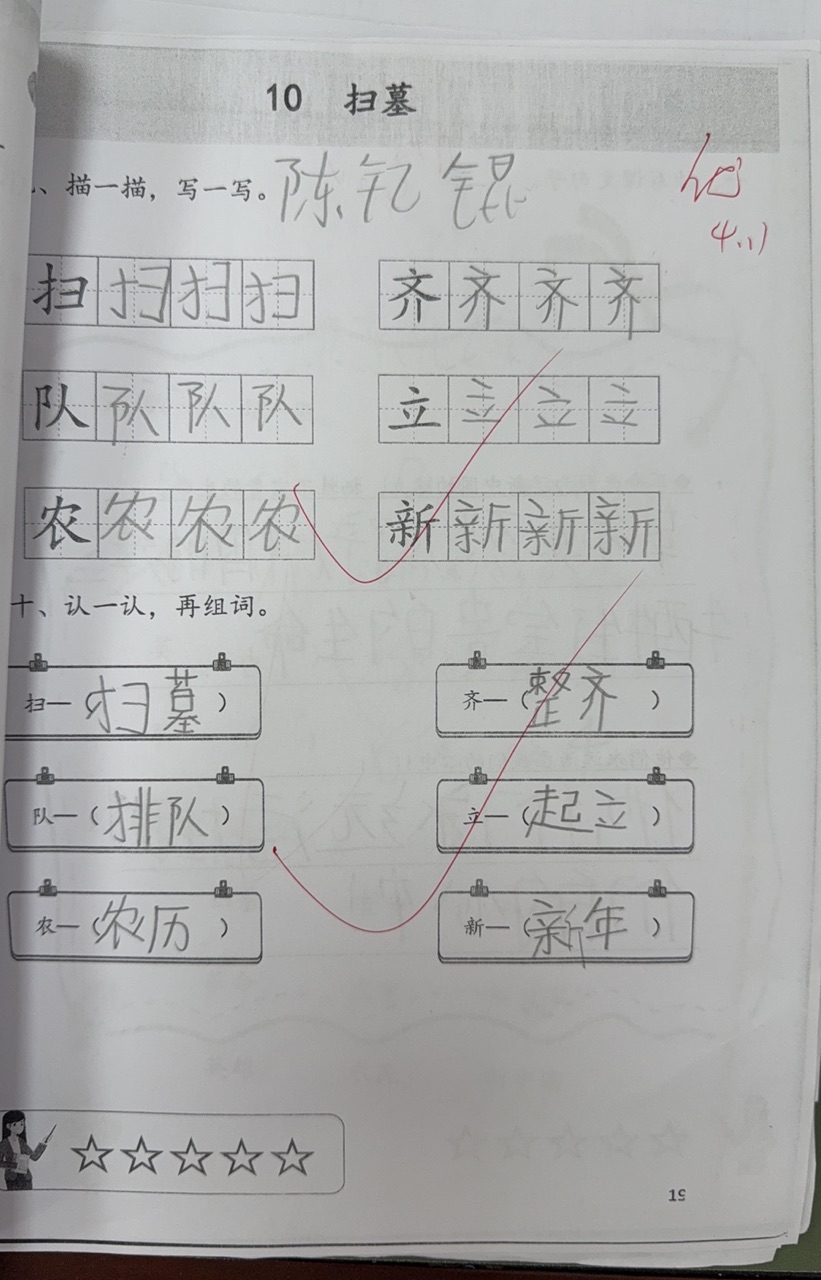 10 扫墓
、描一描，写一写。陈钇锟
4.11
扫扫扫扫 齐齐齐齐
队队队队 立立立立
农农农农 新新新新
十、认一认，再组词。
扫—（扫墓） 齐—（整齐）
队—（排队） 立—（起立）
农—（农历） 新—（新年）
19